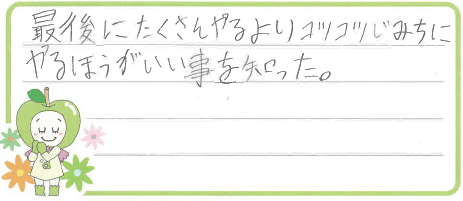 最後にたくさんやるよりコツコツじみちに
やるほうがいい事を知った。